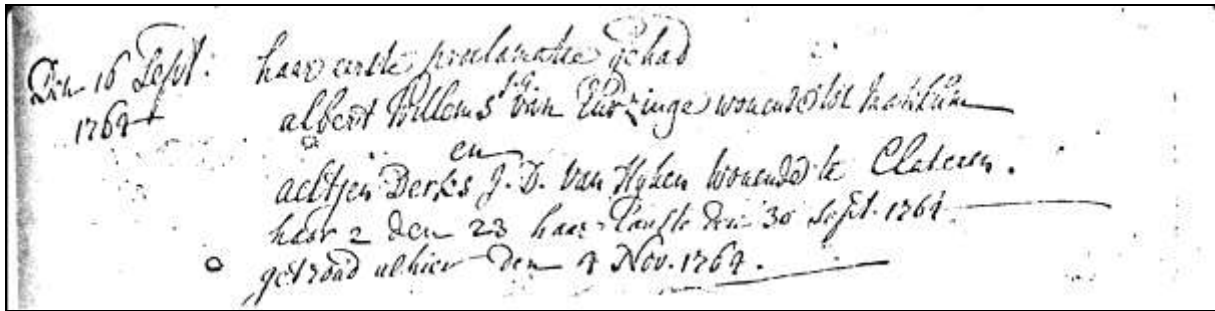 Den 16 Sept: haar eerste proclamatie gehad
1764 albert Willems J.G. van Eurzinge woUende tot
en
aeltjen Derks J.D. van Hyken wonende te Clateren.
haar 2 den 23 haar laaste den 30 Sept. 1764.
getroud alhier den 4 Nov. 1764.